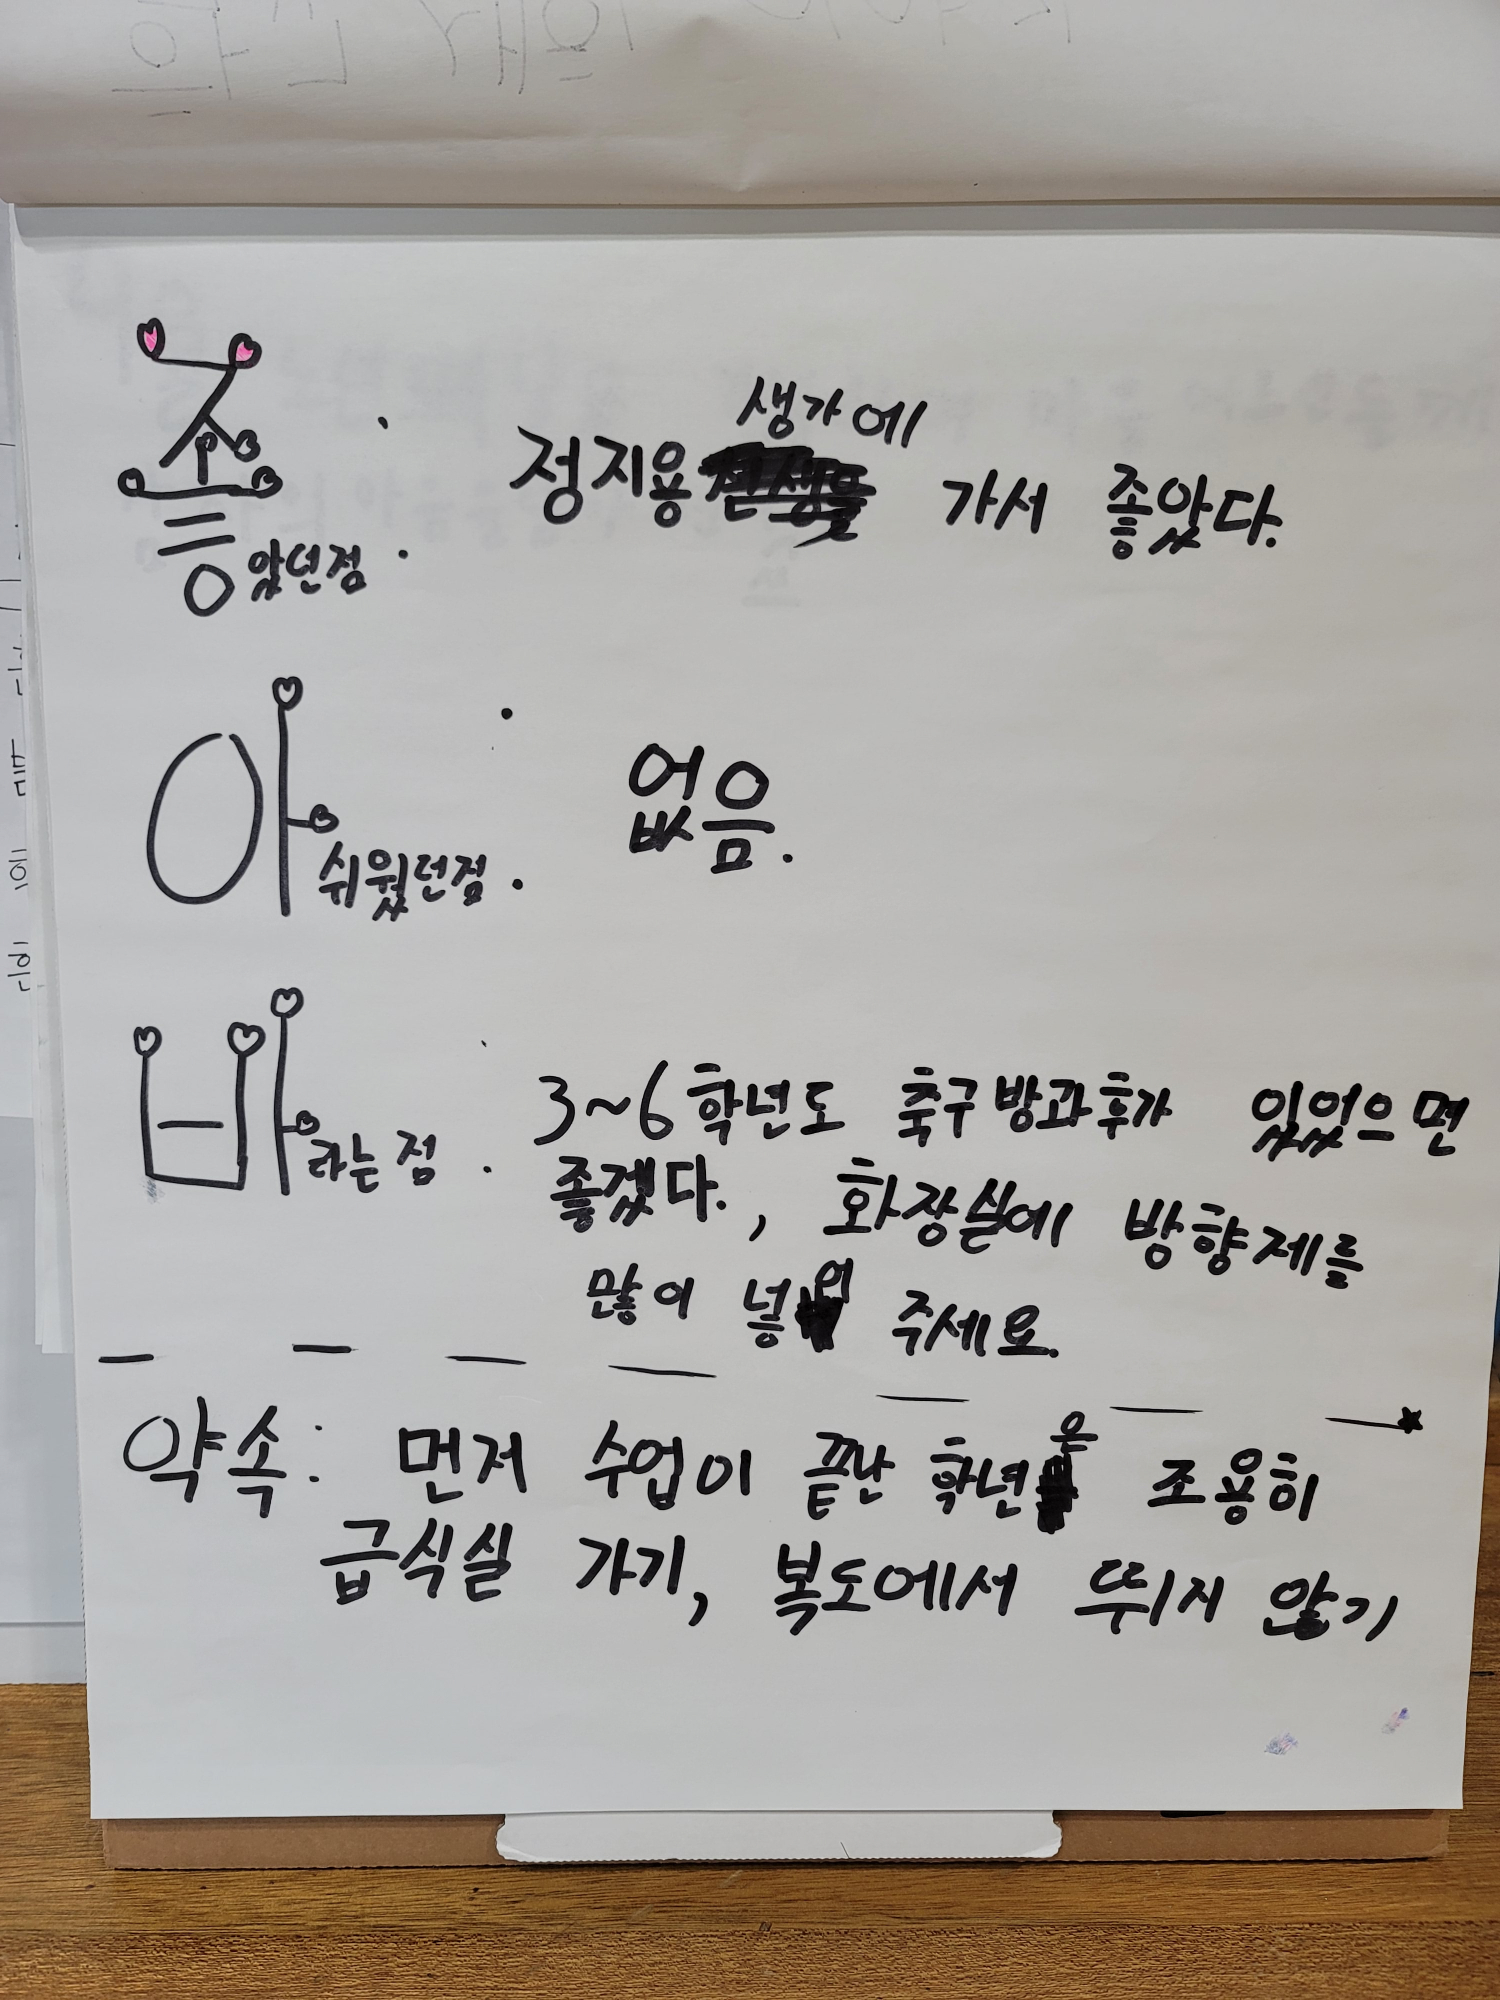 좋았던점 : 정지용 생가에 가서 좋았다.
아쉬웠던점 : 없음.
바라는 점 : 3~6학년도 축구 방과후가 있었으면
좋겠다., 화장실에 방향제를
많이 넣어 주세요.
약속: 먼저 수업이 끝난 학년은 조용히
급식실 가기, 복도에서 뛰지 않기